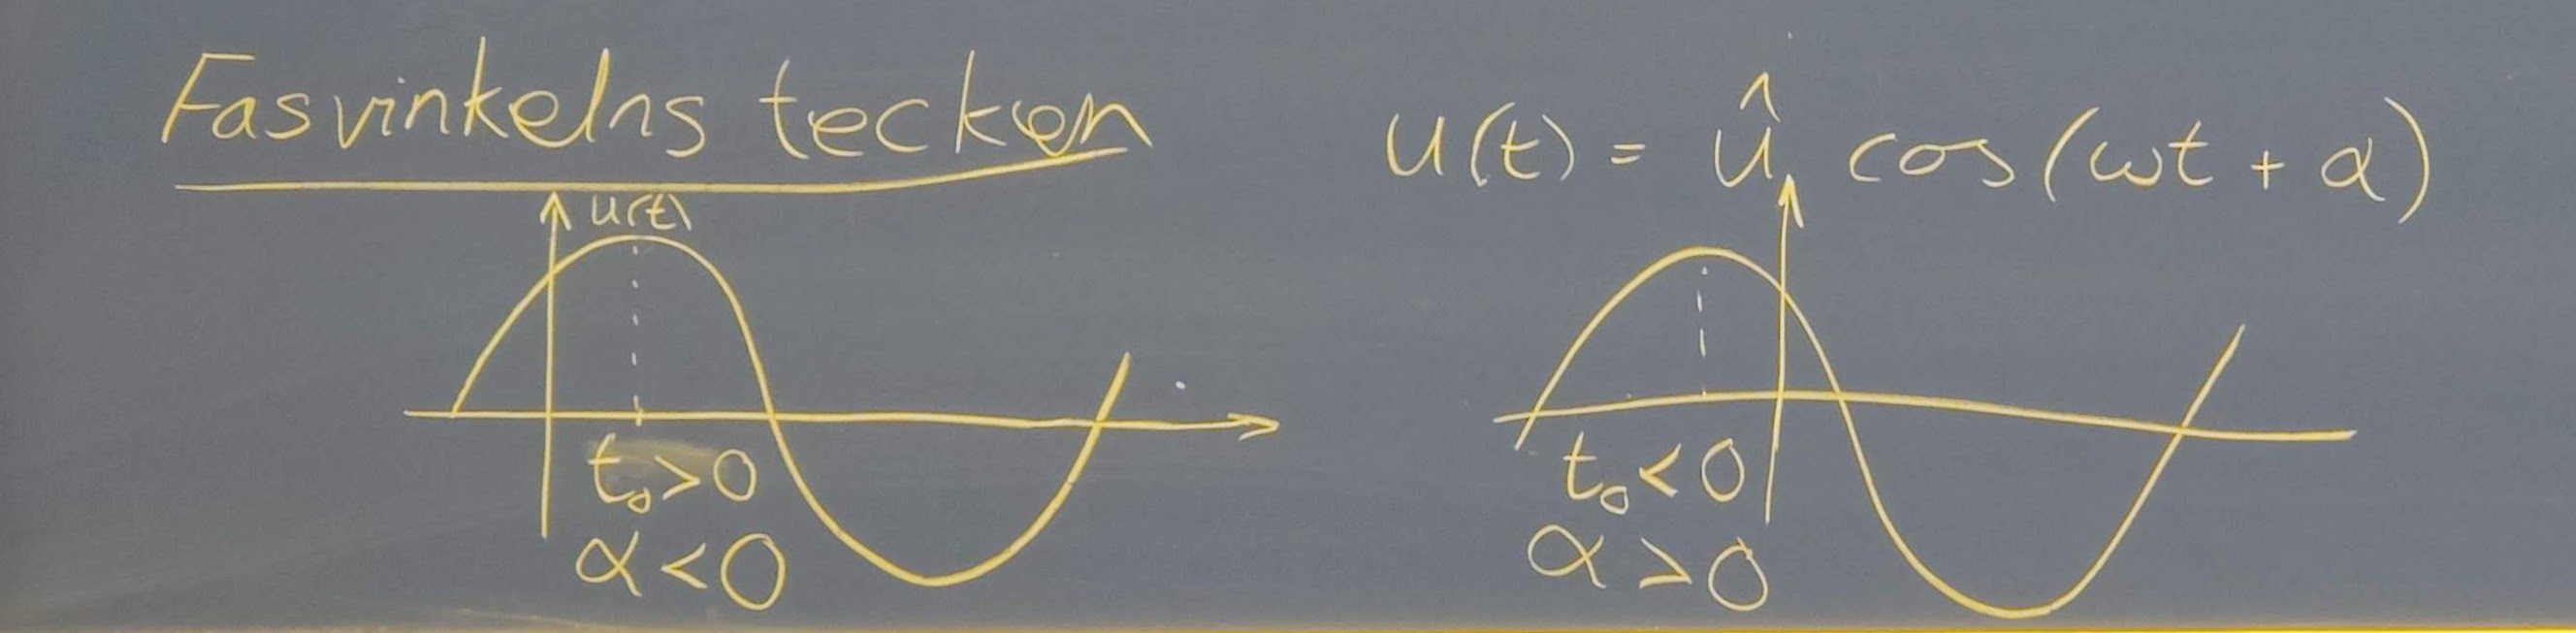 Fasvinkelns tecken
u(t) = û cos(ωt + α)
u(t)
t₀>0
α<0
t₀<0
α>0